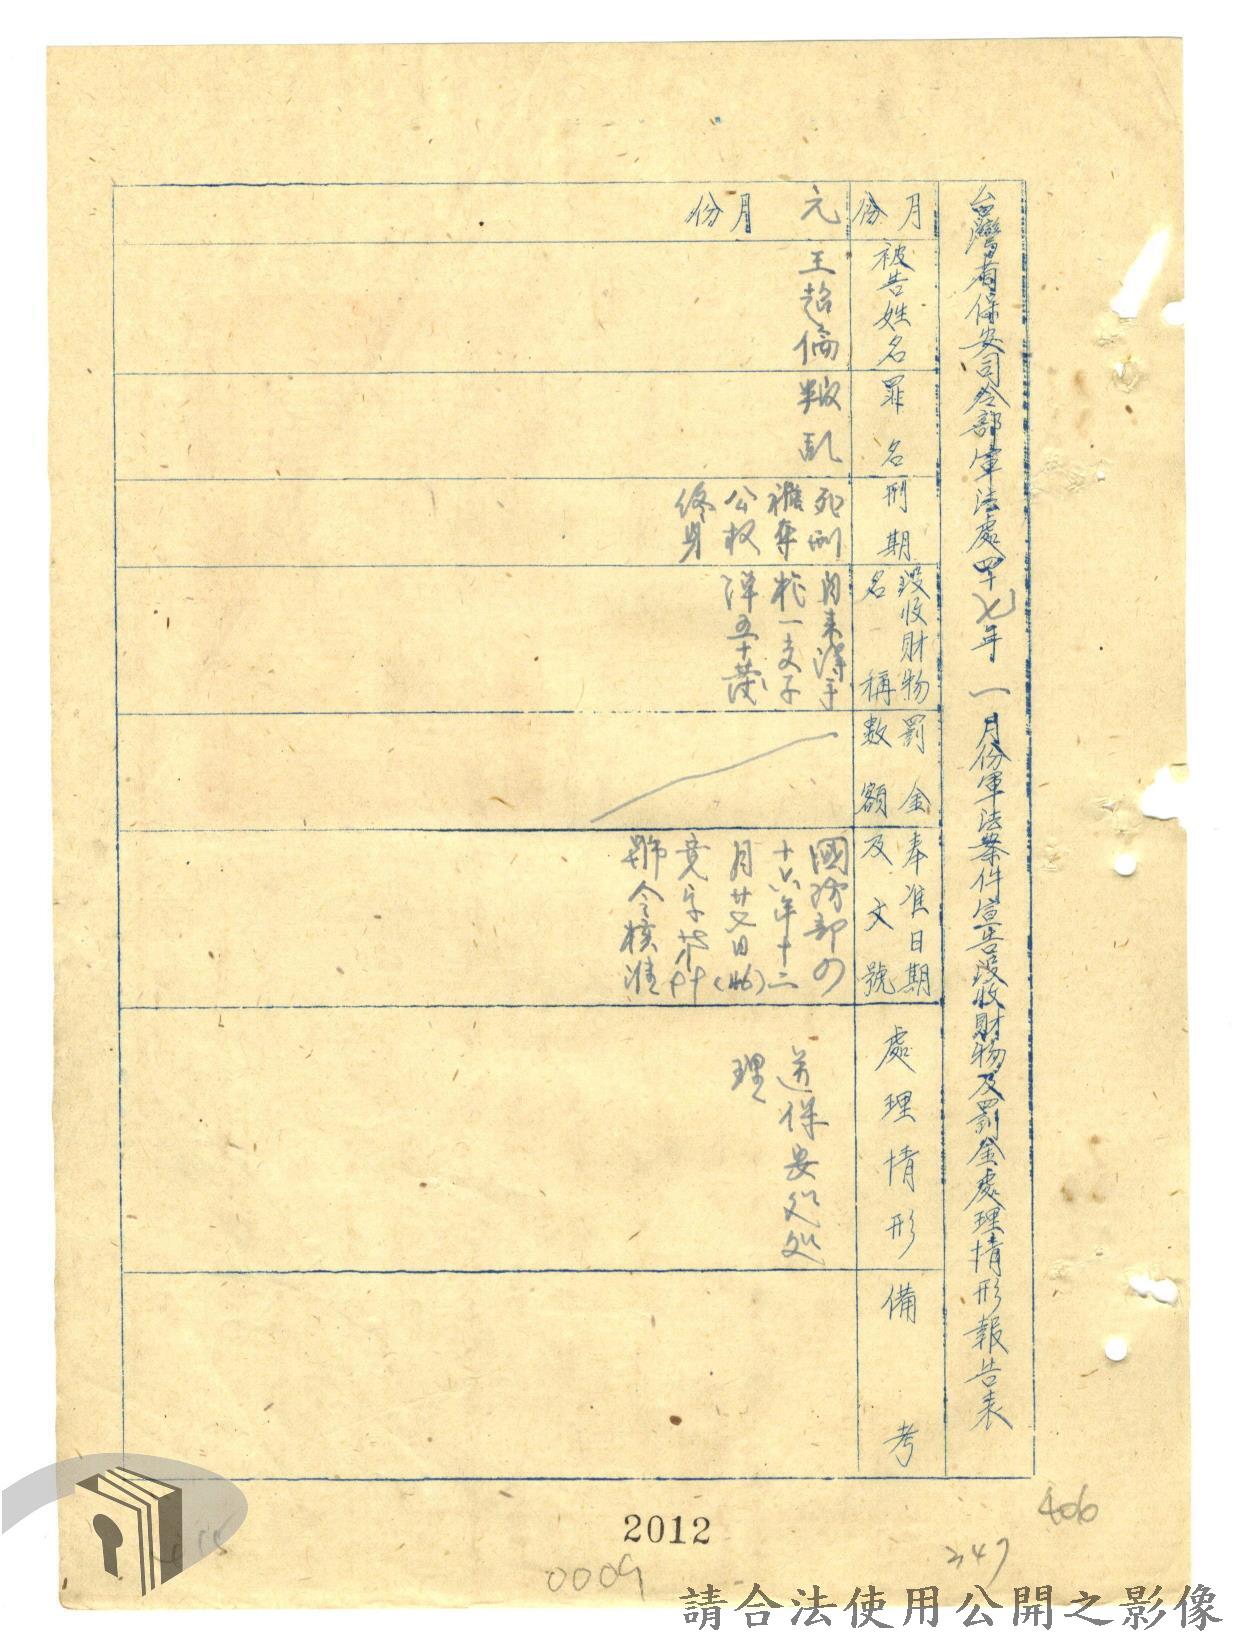 台灣省保安司令部軍法處四十七年一月份軍法案件宣告没收財物及罰金處理情形報告表
月份
被告姓名
罪名
刑期
没收財物
名稱
罰金
数額
奉准日期
及文號
處理情形
備考
元月份
王超倫
叛亂
死刑
褫奪
公权
終身
自来得手
枪一支子
弹五十發
國防部四
十六年十二
月廿日(46)
號令核准
送保安处处
理
2012
0009
347
406
請合法使用公開之影像